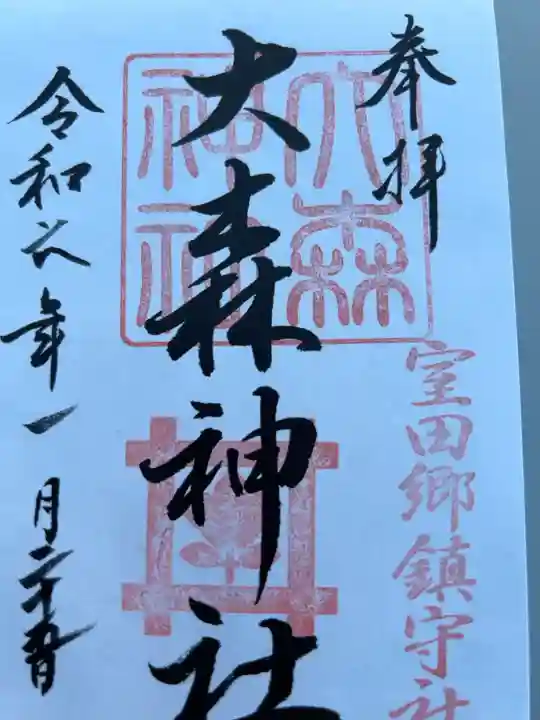 奉拝
室田郷鎮守社
大森神社
大森神社
令和六年一月二十五日